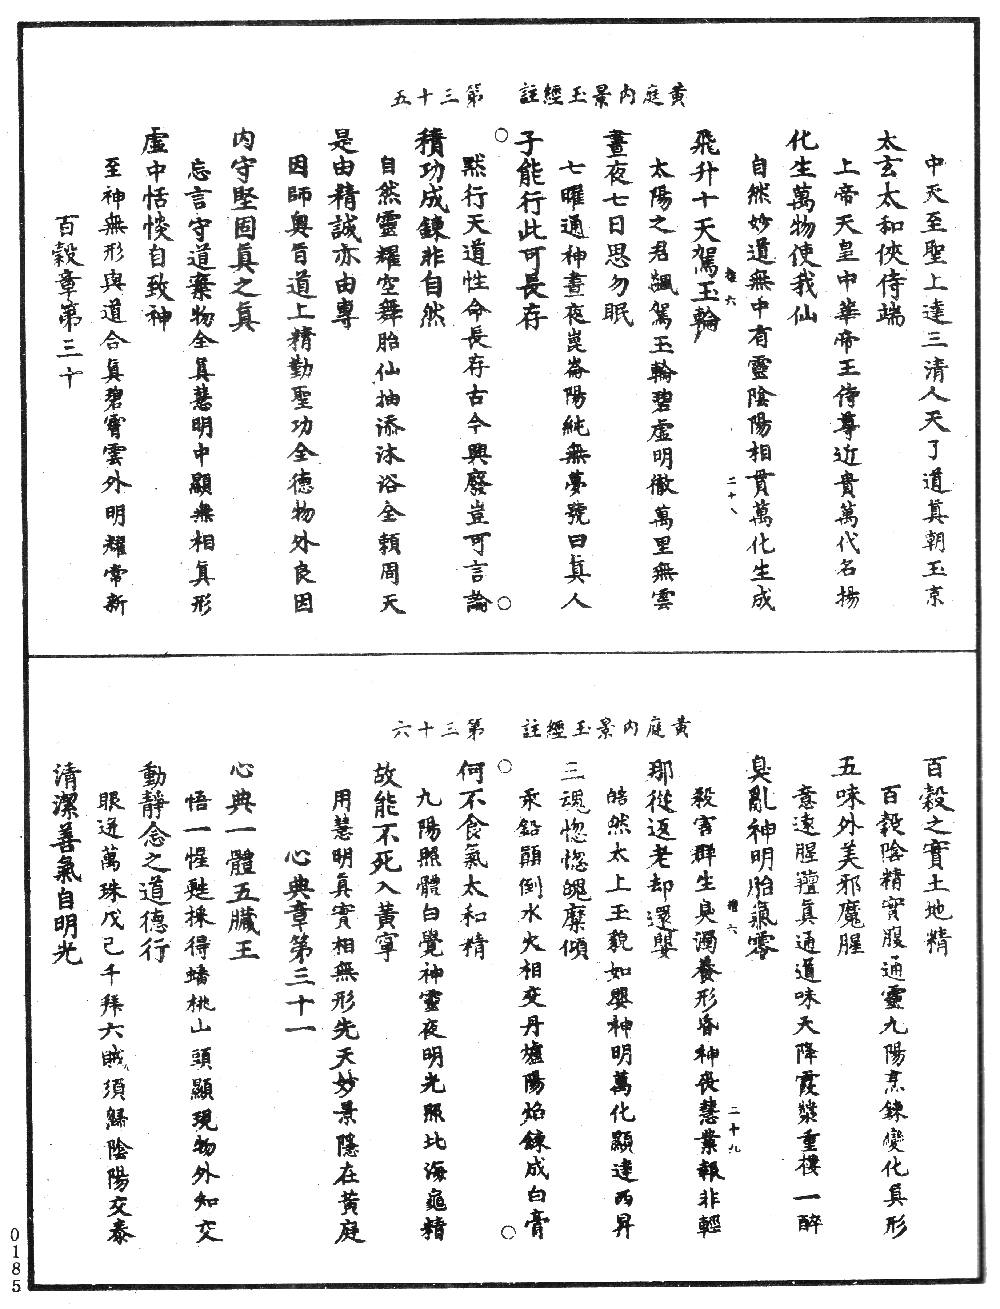 黃庭內景玉經註　第三十五
中天至聖上達三清人天了道真朝玉京
太玄太和俠侍端
上帝天皇中華帝王侍尊近貴萬代名揚
化生萬物使我仙
自然妙道無中有靈陰陽相貫萬化生成
飛升十天駕玉輪
太陽之君飈駕玉輪碧虛明徹萬里無雲
晝夜七日思勿眠
七曜通神晝夜崑崙陽純無夢號曰真人
子能行此可長存
默行天道性命長存古今興廢豈可言論
積功成鍊非自然
自然靈耀空舞胎仙抽添沐浴全賴周天
是由精誠亦由專
因師奧旨道上精勤聖功全德物外良因
內守堅固真之真
忘言守道棄物全真慧明中顯無相真形
虛中恬惔自致神
至神無形與道合真碧霄雲外明耀常新
百穀章第三十
黃庭內景玉經註　第三十六
百穀之實土地精
百穀陰精實腹通靈九陽烹鍊變化真形
五味外美邪魔腥
意遠腥羶真通道味天降霞漿重樓一醉
臭亂神明胎氣零
殺害群生臭濁養形昏神喪慧業報非輕
那從返老却還嬰
皓然太上玉貌如嬰神明萬化顯達西昇
三魂惚惚魄糜傾
汞鉛顛倒水火相交丹爐陽焰鍊成白膏
何不食氣太和精
九陽照體白覺神靈夜明光照比海龜精
故能不死入黃寧
用慧明真實相無形先天妙景隱在黃庭
心典章第三十一
心典一體五臟王
悟一惺甦採得蟠桃山頭顯現物外知交
動靜念之道德行
眼迸萬珠戊己千拜六賊須歸陰陽交泰
清潔善氣自明光
二十八
二十九
0185